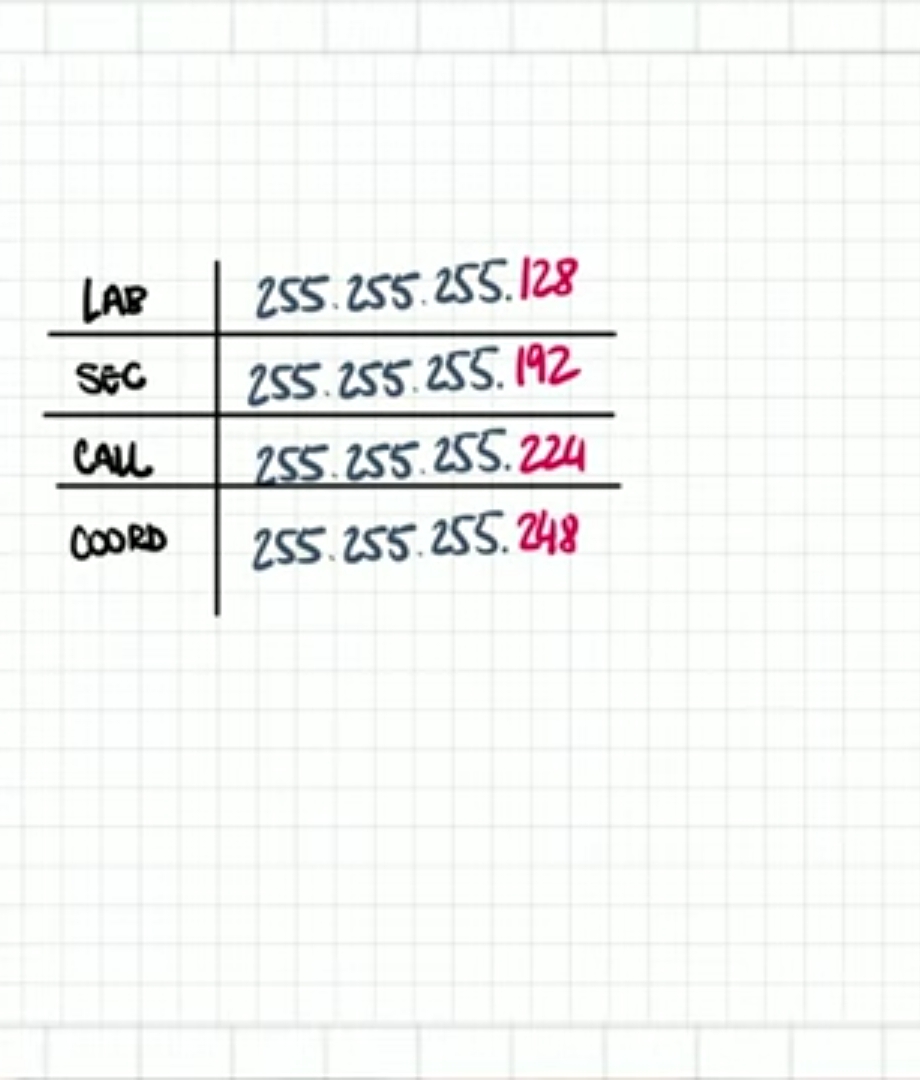 LAB 255.255.255.128
SEC 255.255.255.192
CALL 255.255.255.224
COORD 255.255.255.248